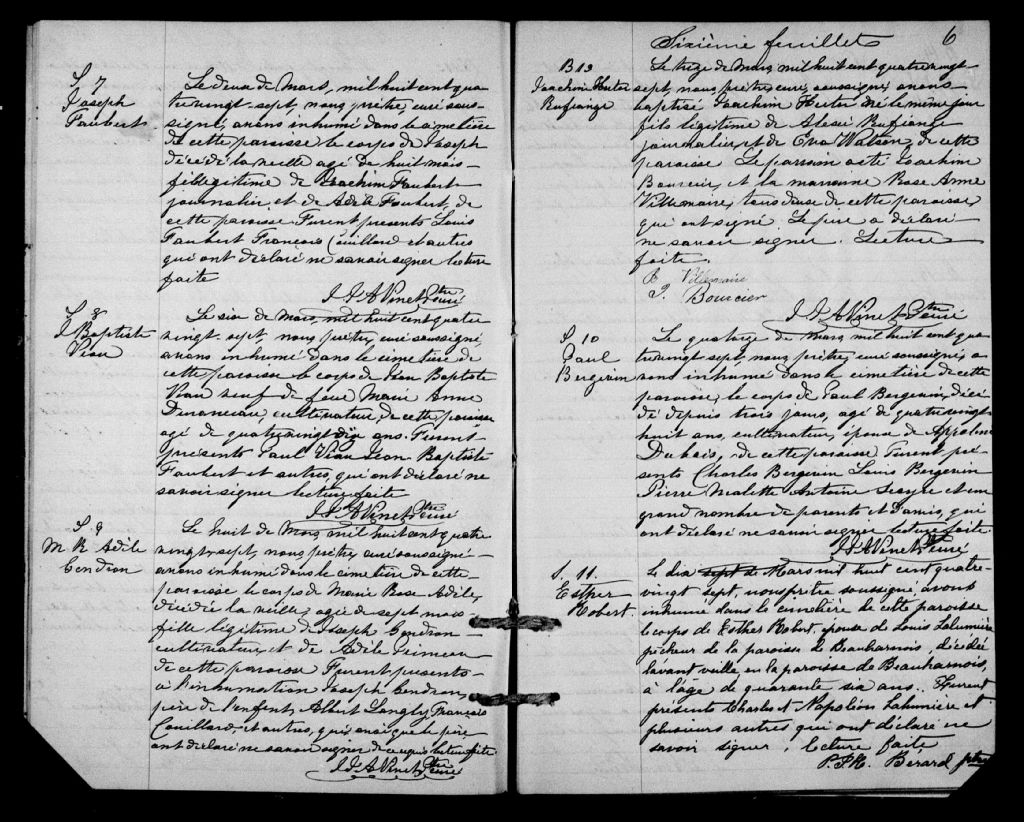 S. 7
Joseph
Faubert
Le deux de Mars, mil huit cent qua
tre vingt-sept, nous prêtre, curé sous-
signé, avons inhumé dans le cimetière
de cette paroisse le corps de Joseph
décédé la veille agé de huit mois
fils légitime de Joachim Faubert
journalier et de Adèle Faubert, de
cette paroisse Furent presents Louis
Faubert François Couillard et autres
qui ont déclaré ne savoir signer lecture
faite
J J A Vinet Ptre curé
S. 8
J. Baptiste
Viau
Le six de Mars, mil huit cent quatre
vingt-sept, nous prêtre, curé soussigné,
avons inhumé dans le cimetière de
cette paroisse le corps de Jean Baptiste
Viau veuf de feue Marie Anne
cultivateur, de cette paroisse
agé de quatre vingt dix ans. Furent
présents Paul Viau Jean Baptiste
Faubert et autres, qui ont déclaré ne
savoir signer lecture faite
J J A Vinet Ptre curé
S. 9
M R Adèle
Gendron
Le huit de Mars mil huit cent quatre
vingt sept, nous prêtre, curé soussigné
avons inhumé dans le cimetière de cette
paroisse le corps de Marie Rose Adèle,
décédée la veille, agée de sept mois
fille légitime de Joseph Gendron
cultivateur, et de Adèle Primeau
de cette paroisse Furent presents
à l'inhumation Joseph Gendron,
père de l'enfant, Albert Langly, François
Couillard, et autres, qui ainsi que le père
ont déclaré ne savoir signer de ce requis lecture faite
J J A Vinet Ptre curé
6
Sixième feuillet
B 13
Joachim Hector
Buffiange
Le treize de Mars mil huit cent quatre vingt-
sept, nous, prêtre, curé, soussigné, avons
baptisé Joachim Hector né le même jour
fils légitime de Alexis
journalier, et de Eva Watson, de cette
paroisse Le parrain a été Joachim
Bourcier, et la marraine Rose Anne
Villemaire, tous deux de cette paroisse
qui ont signé. Le père a déclaré
ne savoir signer. Lecture
faite.
R. Villemaire
J. Bourcier
J J A Vinet Ptre curé
S 10
Paul
Bergevin
Le quatorze de Mars mil huit cent qua-
tre vingt sept, nous prêtre, curé soussigné, a
vons inhumé dans le cimetière de cette
paroisse, le corps de Paul Bergevin, décé
dé depuis trois jours, agé de quatre vingt
huit ans, cultivateur, époux de Appoline
Dubois, de cette paroisse Furent pré
sents Charles Bergevin Louis Bergevin
Pierre Malette Antoine et un
grand nombre de parents et d'amis, qui
ont déclaré ne savoir signer lecture faite.
J J A Vinet Ptre curé
S. 11.
Esther
Robert.
Le dix sept de Mars mil huit cent quatre-
vingt sept, nous prêtre soussigné, avons
inhumé dans le cimetière de cette paroisse
le corps de Esther Robert, épouse de Louis Lalumière
pêcheur de la paroisse de Beauharnois, décédée
l'avant veille en la paroisse de Beauharnois,
à l'âge de quarante six ans. Furent
présents Charles et Napoléon Lalumière et
plusieurs autres qui ont déclaré ne
savoir signer, lecture faite
Berard ptre